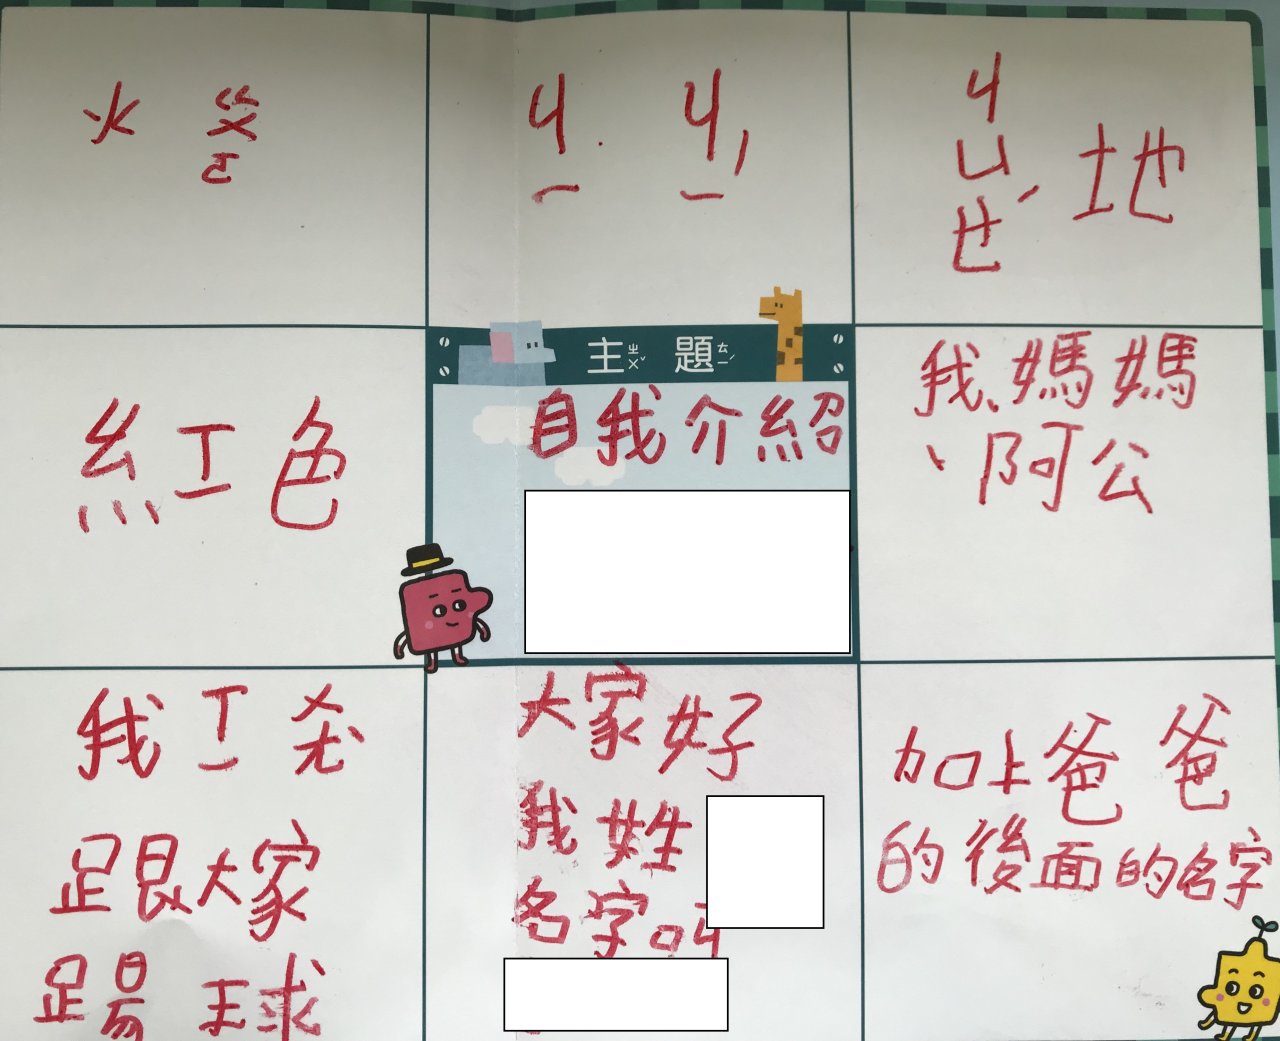 火 ㄍㄨㄛ
ㄐㄧ ㄐㄧ
ㄐㄩㄝˊ 地
紅色
主ㄓㄨˇ 題ㄊㄧˊ
自我介紹
我、媽媽
、阿公
我
跟大家
踢 球
大家好
我姓
名字叫
加上爸爸
的後面的名字